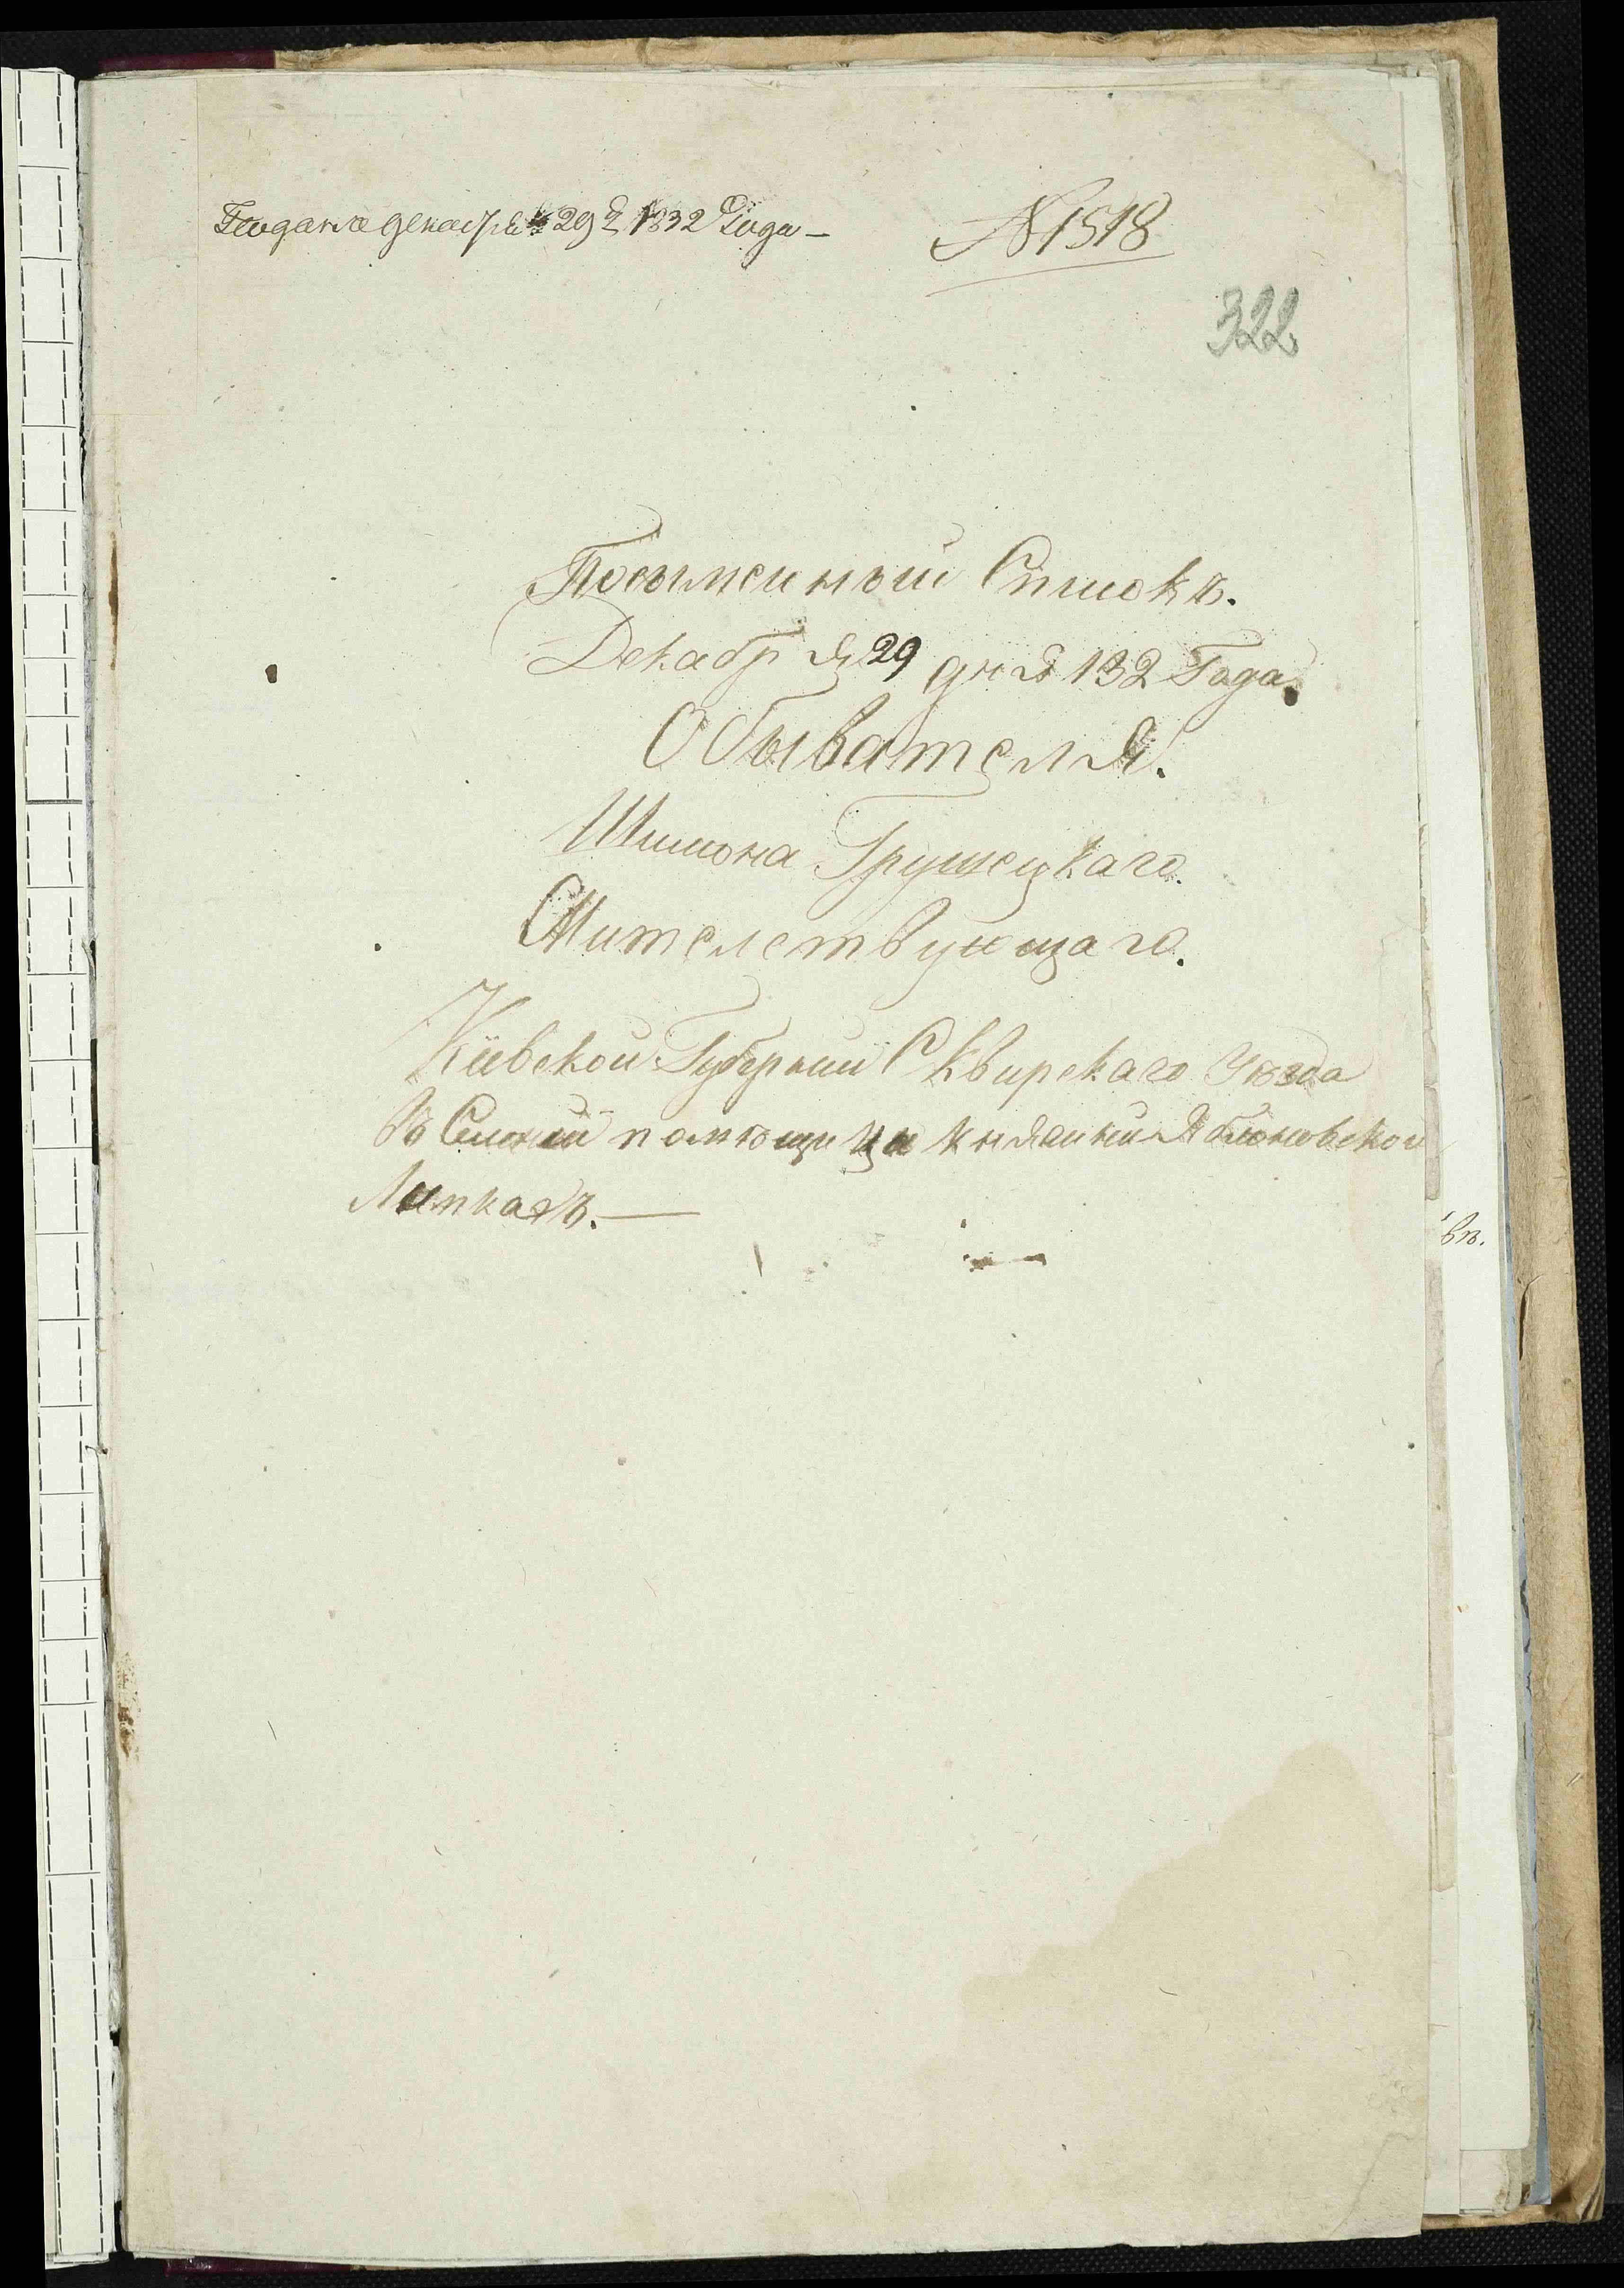 Поданъ декабря 29 д 1832 Года —
№ 1518
322
Посыменный Списокъ.
Декабря 29 дня 132 Года.
Обывателя.
Шимона Грушецкаго.
Жителствующаго.
Кіевской Губернии Сквирскаго Уезда
В помющици княгини Яблоновской
Липкахъ. —
въ.